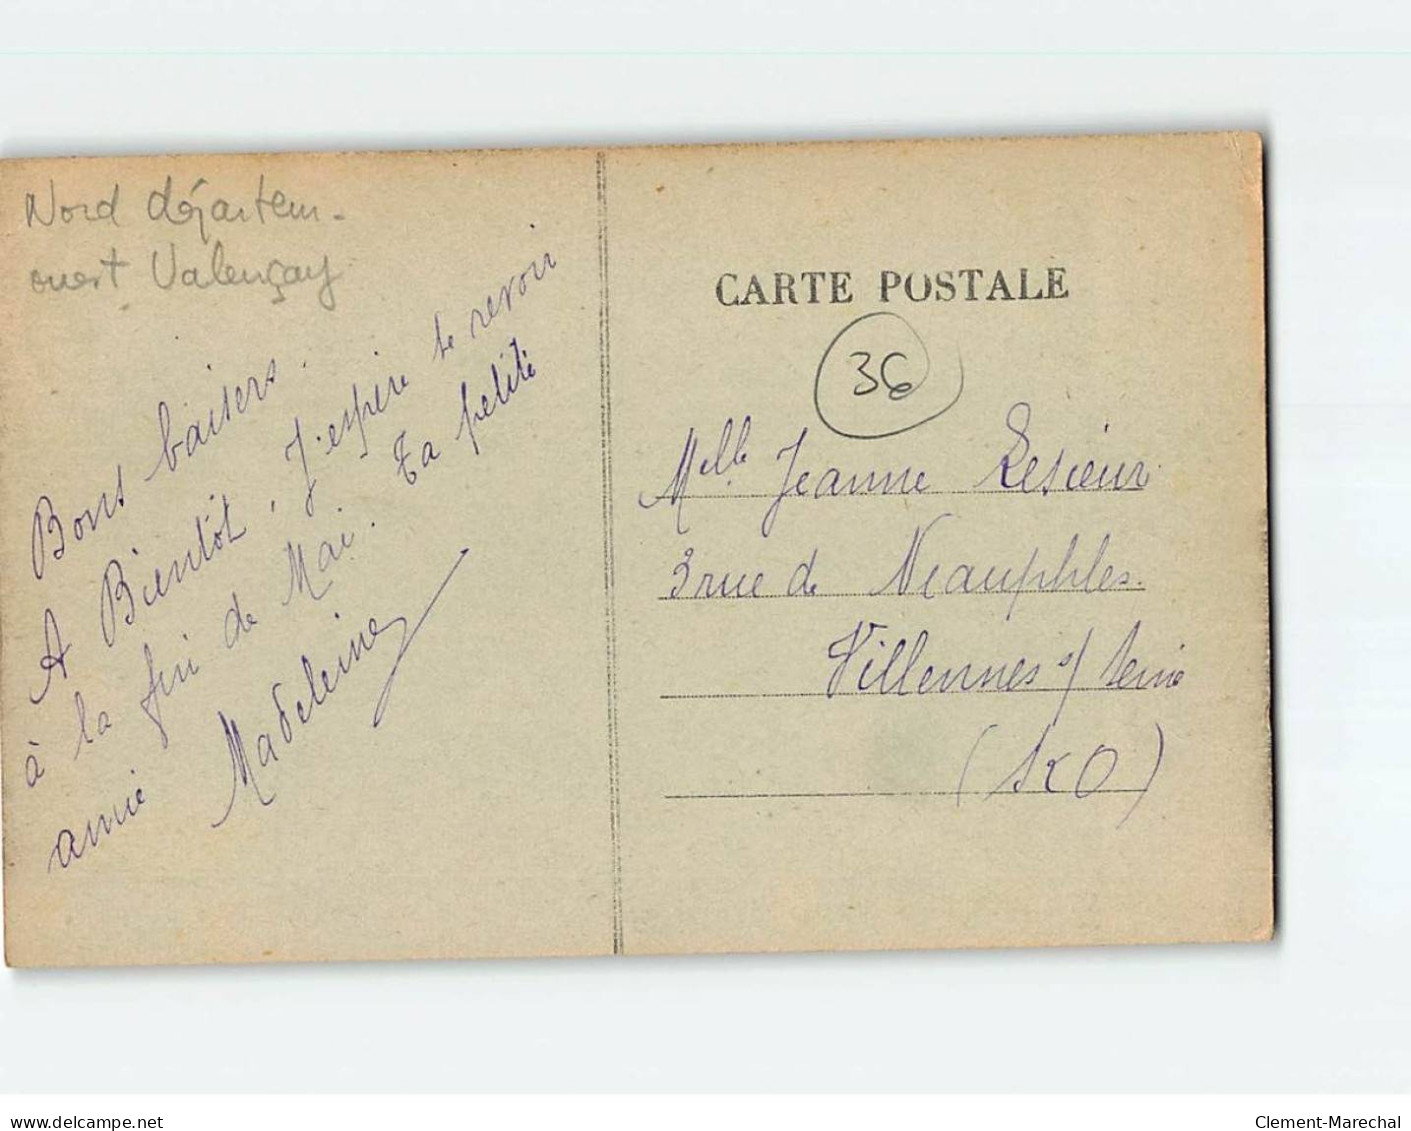 Nord départem-
ouest Valençay
Bons baisers.
A Bientôt. J'espère te revoir
à la fin de Mai. Ta petite
amie Madeleine
CARTE POSTALE
36
Melle Jeanne Lesieur
3 rue de Neauphles.
Villennes s/ Seine
(S&O)
www.delcampe.net
Clement-Marechal